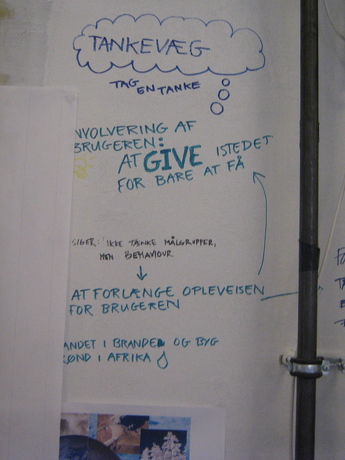 TANKEVÆG
TAG
EN TANKE
NVOLVERING AF
BRUGEREN:
AT GIVE ISTEDET
FOR BARE AT FÅ
SIGER: IKKE TÆNKE MÅLGRUPPER,
MEN BEHAVIOUR
AT FORLÆNGE OPLEVELSEN
FOR BRUGEREN
ANDET I BRANDE OG BYG
ØND I AFRIKA